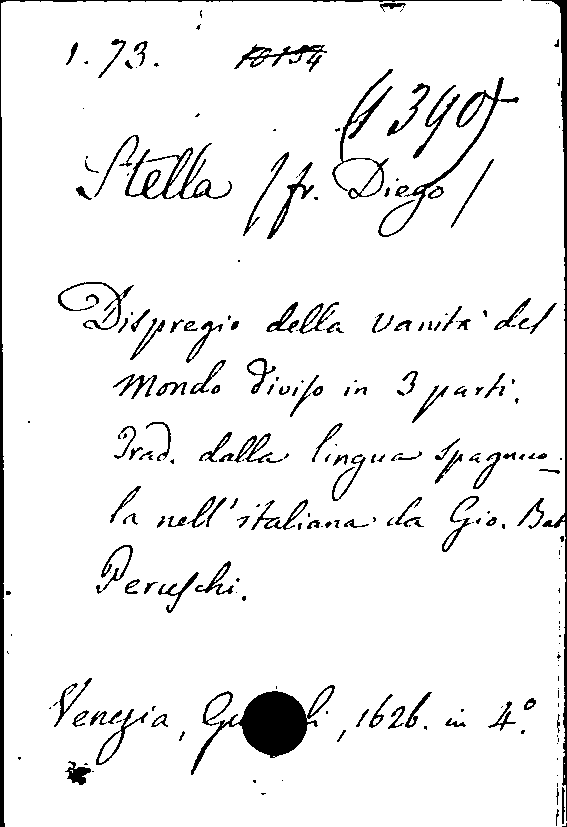 1.73. 10154
(1390)
Stella / fr. Diego /
Dispregio della vanità del
mondo diviso in 3 parti.
Trad. dalla lingua spagnuo-
la nell'italiana da Gio. Bat.
Peruschi.
Venezia, , 1626. in 4°.